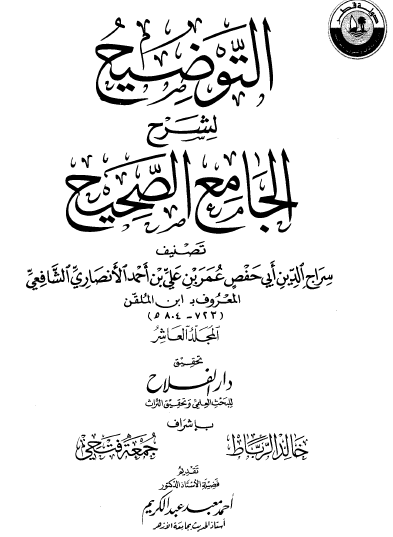 دولة قطر
التوضيح
لشرح
الجامع الصحيح
تصنيف
سراج الدين أبي حفص عمر بن علي بن أحمد الأنصاري الشافعي
المعروف بـ ابن الملقن
(٧٢٣ - ٨٠٤ هـ)
المجلد العاشر
تحقيق
دار الفلاح
للبحث العلمي وتحقيق التراث
بإشراف
خالد الرباط جمعة فتحي
تقديم
فضيلة الأستاذ الدكتور
أحمد معبد عبد الكريم
أستاذ الحديث بجامعة الأزهر